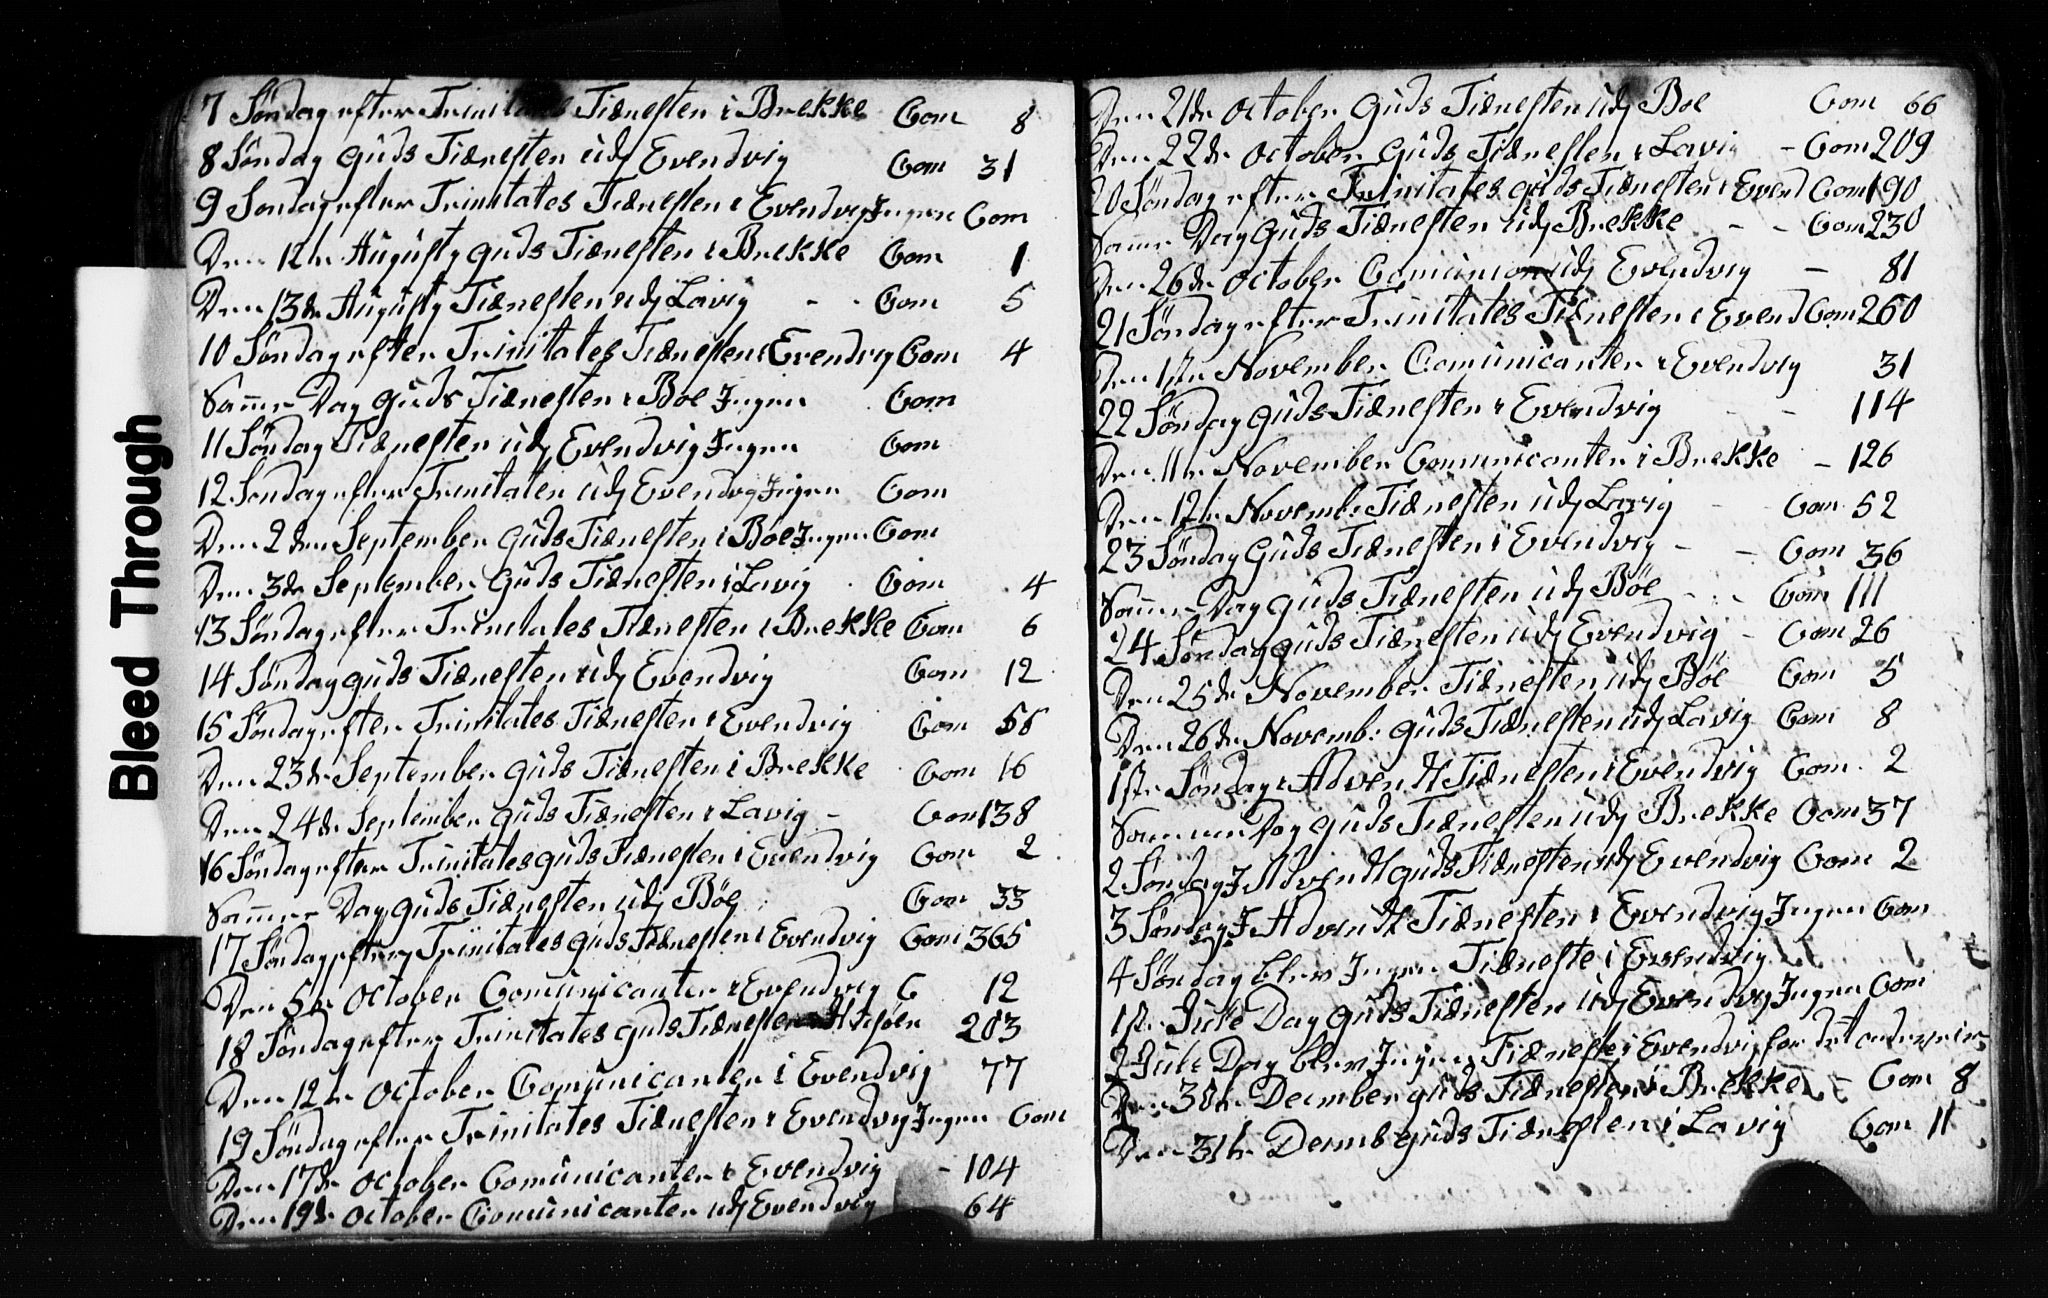 7 Søndag efter Trinitates Tiænesten i Brekke Com 8
8 Søndag Guds Tiænesten udj Evendvig Com 31
9 Søndag efter Trinitates Tiænesten i Evendvig Ingen Com
Den 12te Augusty Guds Tiænesten i Brekke Com 1
Den 13de Augusty Tiænesten udj Lavig - - Com 5
10 Søndag efter Trinitates Tiænesten i Evendvig Com 4
Samme Dag Guds Tiænesten i Boe Ingen Com
11 Søndag Tiænesten udj Evendvig Ingen Com
12 Søndag efter Trinitaten udj Evendvig Ingen Com
Den 2den September Guds Tiænesten i Böe Ingen Com
Den 3de September Guds Tiænesten i Lavig Com 4
13 Søndag efter Trinitates Tiænesten i Brekke Com 6
14 Søndag Guds Tiænesten udj Evendvig Com 12
15 Søndag efter Trinitates Tiænesten i Evendvig Com 55
Den 23de September Guds Tiænesten i Brekke Com 16
Den 24de September Guds Tiænesten i Lavig - Com 138
16 Søndag efter Trinitates Guds Tiænesten i Evendvig Com 2
Samme Dag Guds Tiænesten udj Böe Com 33
17 Søndag efter Trinitates Guds Tiænesten i Evendvig Com 365
Den 5te October Comunicanter i Evendvig C 12
18 Søndag efter Trinitates Guds Tiænesten 203
Den 12te October Comunicanter i Evendvig 77
19 Søndag efter Trinitates Tiænesten i Evendvig Ingen Com
Den 17de October Comunicanter i Evendvig - 104
Den 19de October Comunicanter udj Evendvig 64
Den 21de October Guds Tiænesten udj Boe Com 66
Den 22de October Guds Tiænesten i Lavig - Com 209
20 Søndag efter Trinitates Guds Tiænesten i Evend Com 190
Samme Dag Guds Tiænesten udj Brekke - - Com 230
Den 26de October Comunion udj Evendvig - 81
21 Søndag efter Trinitates Tiænesten i Evend Com 260
Den 1ste November Comunicanter i Evendvig 31
22 Søndag Guds Tiænesten i Evendvig - - 114
Den 11te November Comunicanter i Brekke - 126
Den 12te Novemb: Tiænesten udj Lavig - Com 52
23 Søndag Guds Tiænesten i Evendvig - - Com 36
Samme Dag Guds Tiænesten udj Böe - - Com 111
24 Søndag Guds Tiænesten udj Evendvig - Com 26
Den 25de November Tiænesten udj Böe Com 5
Den 26de Novemb: Guds Tiænesten udj Lavig Com 8
1ste Søndag i Advendt Tiænesten i Evendvig Com 2
Sammen Dag Guds Tiænesten udj Brekke Com 37
2 Søndag I Advendt Guds Tiænesten udj Evendvig Com 2
3 Søndag I Advendt Tiænesten i Evendvig Ingen Com
4 Søndag blev Ingen Tiæneste i Evendvig
1ste Jule Dag Guds Tiænesten udj Evendvig Ingen Com
2 Jule Dag blev Ingen Tiæneste i Evendvig for det
Den 30te Decmber Guds Tiænesten i Brekke - Com 8
Den 31te Decemb Guds Tiænesten i Lavig Com 11
Bleed Through